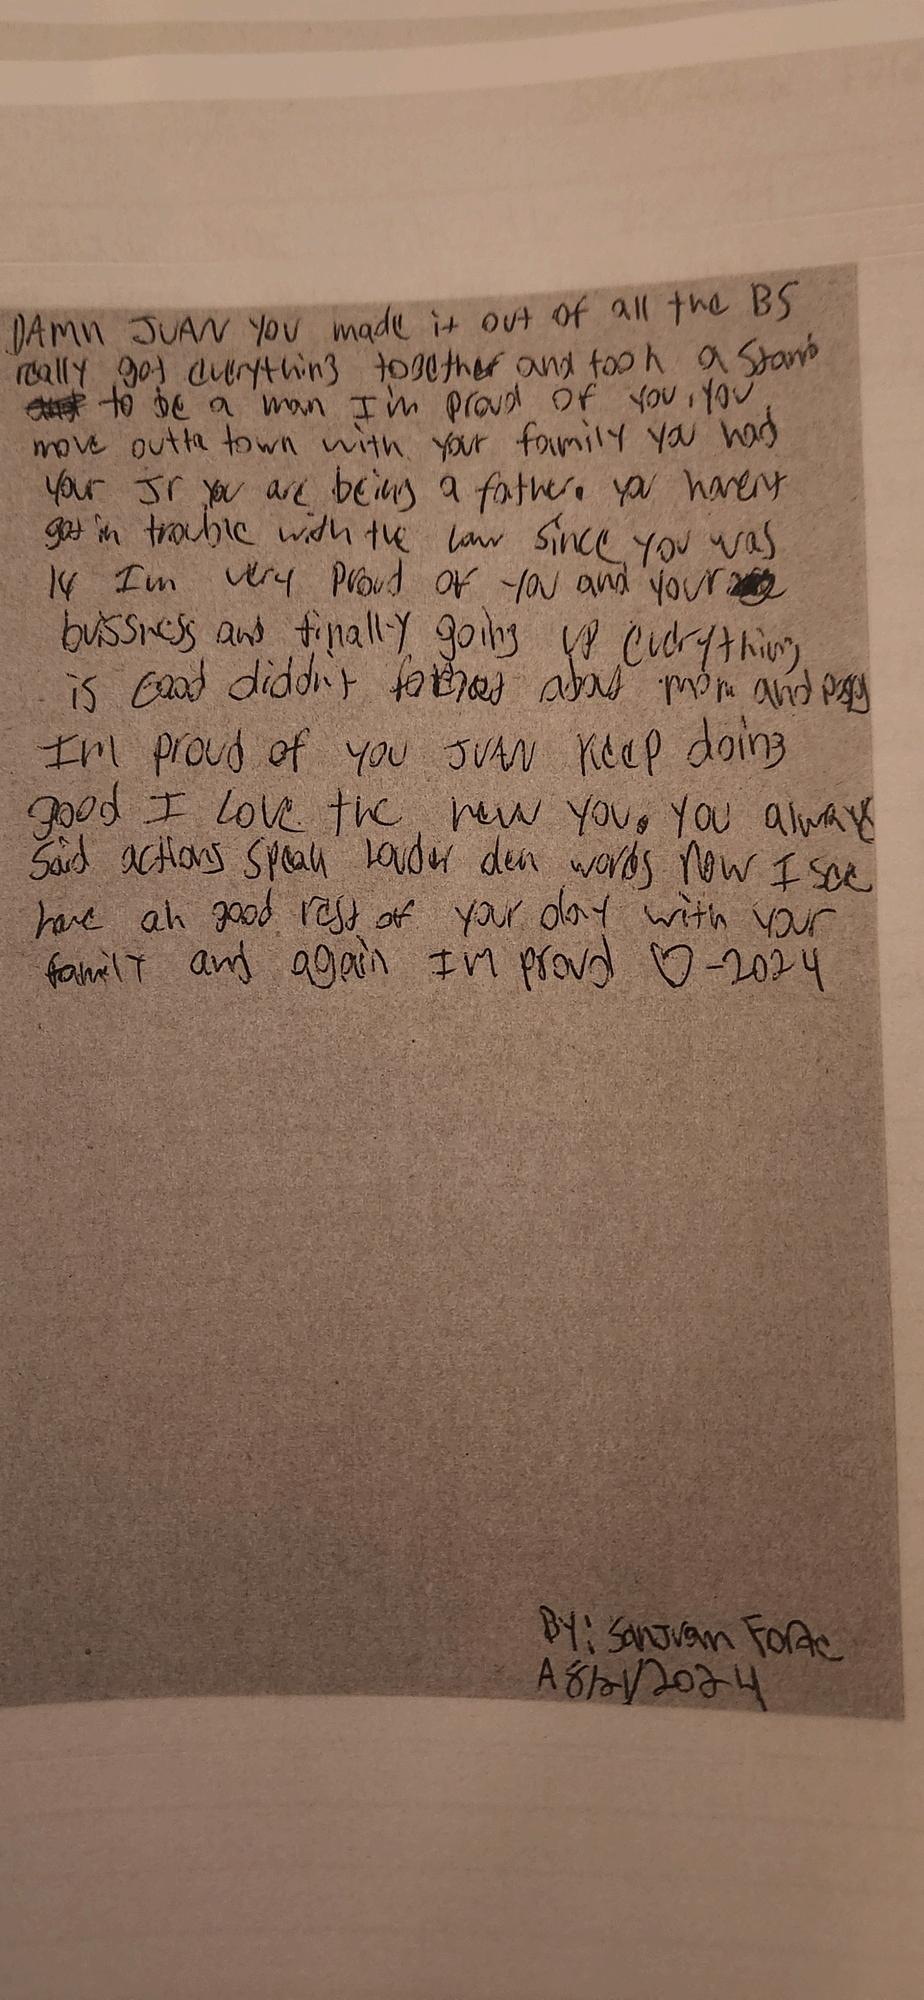 DAMN JUAN YOU made it out of all the BS
really got everything together and took a stand
to be a man I'm proud of you, you
move outta town with your family you had
your Jr you are being a father. you havent
got in trouble with the law since you was
14 I'm very Proud of you and your
bussness and finally going up everything
is Good diddn't about mom and
I'm proud of you JUAN Keep doing
good I Love the new you. You always
said actions speak Louder den words Now I see
have ah good rest of your day with your
family and again I'm proud ♡ -2024
BY: SanJuan
A 8/21/2024